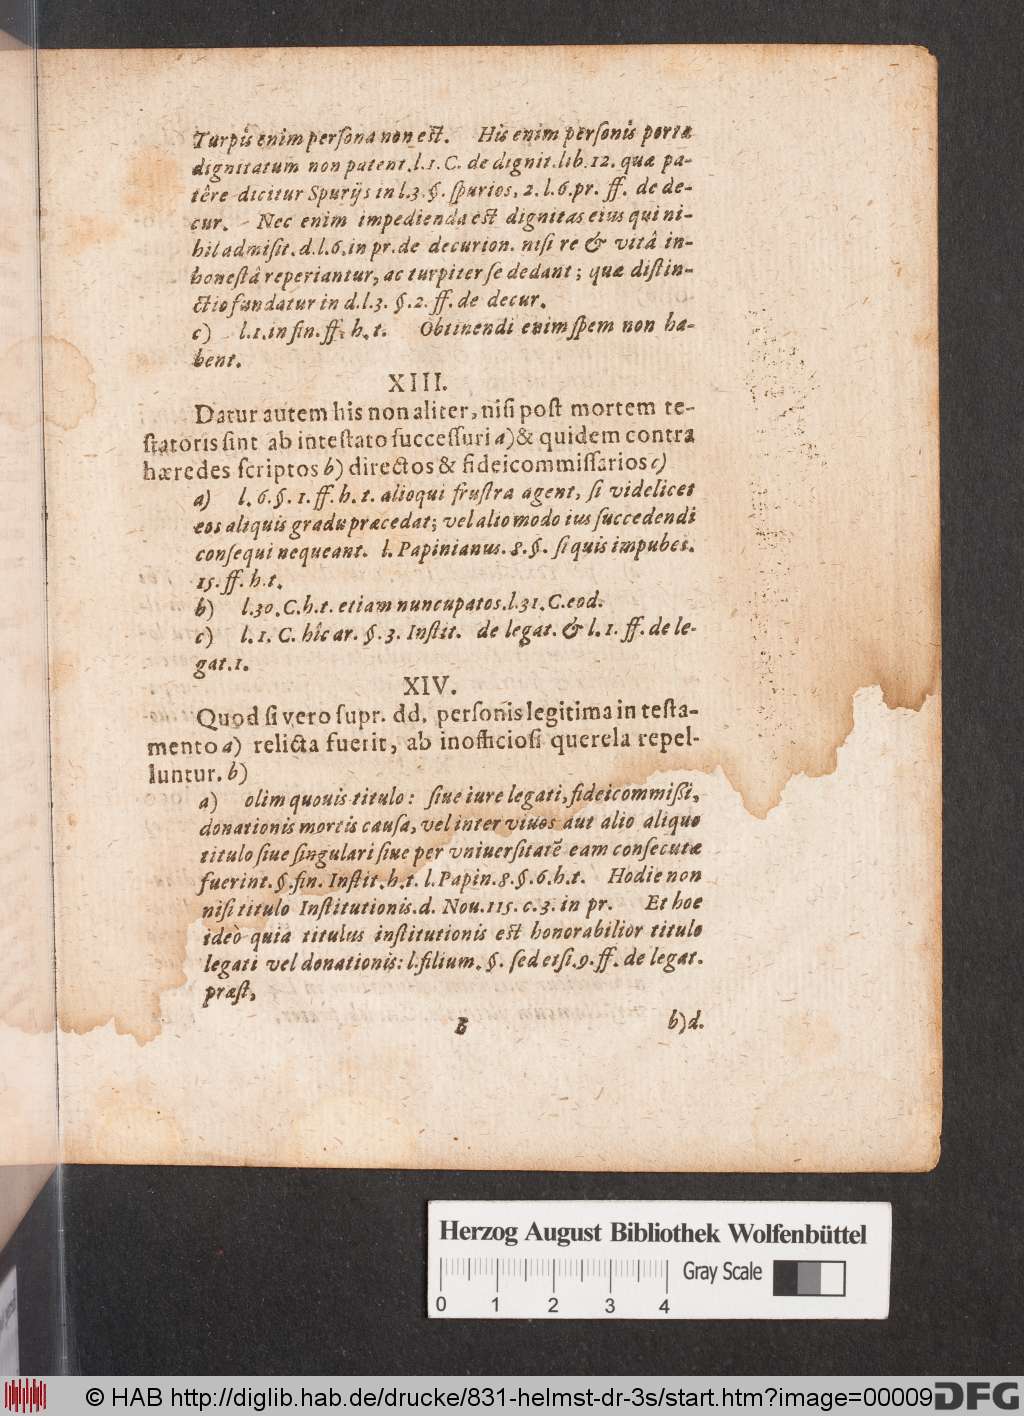 Turpis enim persona non est. His enim personis portæ
dignitatum non patent. l. 1. C. de dignit. lib. 12. quæ pa-
têre dicitur Spurijs in l. 3. §. spurios, 2. l. 6. pr. ff. de de-
cur. Nec enim impedienda est dignitas eius qui ni-
hil admisit. d. l. 6. in pr. de decurion. nisi re & vitâ in-
honestâ reperiantur, ac turpiter se dedant; quæ distin-
ctio fundatur in d. l. 3. §. 2. ff. de decur.
c) l. 1. in fin. ff. h. t. Obtinendi enim spem non ha-
bent.
XIII.
Datur autem his non aliter, nisi post mortem te-
statoris sint ab intestato successuri a) & quidem contra
hæredes scriptos b) directos & fideicommissarios c)
a) l. 6. §. 1. ff. h. t. alioqui frustra agent, si videlicet
eos aliquis gradu præcedat; vel alio modo ius succedendi
consequi nequeant. l. Papinianus. 8. §. si quis impubes.
15. ff. h. t.
b) l. 30. C. h. t. etiam nuncupatos. l. 31. C. eod.
c) l. 1. C. hîc ar. §. 3. Instit. de legat. & l. 1. ff. de le-
gat. 1.
XIV.
Quod si vero supr. dd. personis legitima in testa-
mento a) relicta fuerit, ab inofficiosi querela repel-
luntur. b)
a) olim quouis titulo: siue iure legati, fideicommissi,
donationis mortis causa, vel inter viuos aut alio aliquo
titulo siue singulari siue per vniuersitatē eam consecutæ
fuerint. §. fin. Instit. h. t. l. Papin. 8. §. 6. h. t. Hodie non
nisi titulo Institutionis. d. Nou. 115. c. 3. in pr. Et hoc
ideò quia titulus institutionis est honorabilior titulo
legati vel donationis: l. filium. §. sed etsi. 9. ff. de legat.
præst,
B b) d.
Herzog August Bibliothek Wolfenbüttel
Gray Scale
0 1 2 3 4
© HAB http://diglib.hab.de/drucke/831-helmst-dr-3s/start.htm?image=00009
DFG